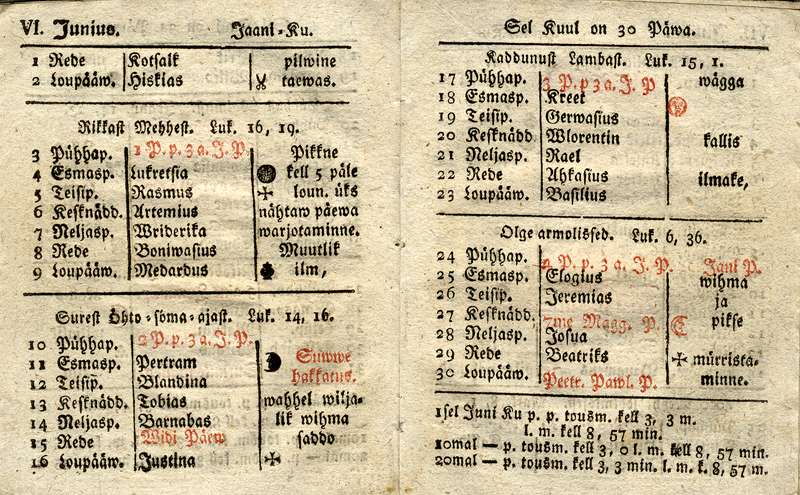 VI. Junius. Jaani-Ku.
1 Rede Kotsalk pilwine
2 Loupääw. Hiskias taewas.
Rikkast Mehhest. Luk. 16, 19.
3 Pühhap. 1 P. p. 3 a. J. P. Pikkne
4 Esmasp. Lukretsia kell 5 päle
5 Teisip. Rasmus loun. üks
6 Kesknädd. Artemius nähtaw päewa
7 Neljasp. Wriderika warjotaminne.
8 Rede Boniwasius Muutlik
9 Loupääw. Medardus ilm,
Surest Öhto-söma-ajast. Luk. 14, 16.
10 Pühhap. 2 P. p. 3 a. J. P.
11 Esmasp. Pertram Suwwe
12 Teisip. Blandina hakkatus.
13 Kesknädd. Tobias wahhel wilja-
14 Neljasp. Barnabas lik wihma
15 Rede Widi Päew saddo
16 Loupääw. Justina
Sel Kuul on 30 Päwa.
Kaddunust Lambast. Luk. 15, 1.
17 Pühhap. 3 P. p 3 a. J. P wägga
18 Esmasp. Kreet
19 Teisip. Gerwasius
20 Kesknädd. Wlorentin kallis
21 Neljasp. Rael
22 Rede Ahkasius ilmake,
23 Loupääw. Basilius
Olge armolissed. Luk. 6, 36.
24 Pühhap. 4 P. p. 3 a. J. P. Jani P.
25 Esmasp. Elogius wihma
26 Teisip. Jeremias ja
27 Kesknädd. 7me Magg. P. pikse
28 Neljasp. Josua
29 Rede Beatriks mürrista-
30 Loupääw. Peetr. Pawl. P. minne.
1sel Juni Ku p. p. tousm. kell 3, 3 m.
l. m. kell 8, 57 min.
10mal — p. tousm. kell 3, 0 l. m. kell 8, 57 min.
20mal — p. tousm. kell 3, 3 min. l. m. k. 8, 57 m.